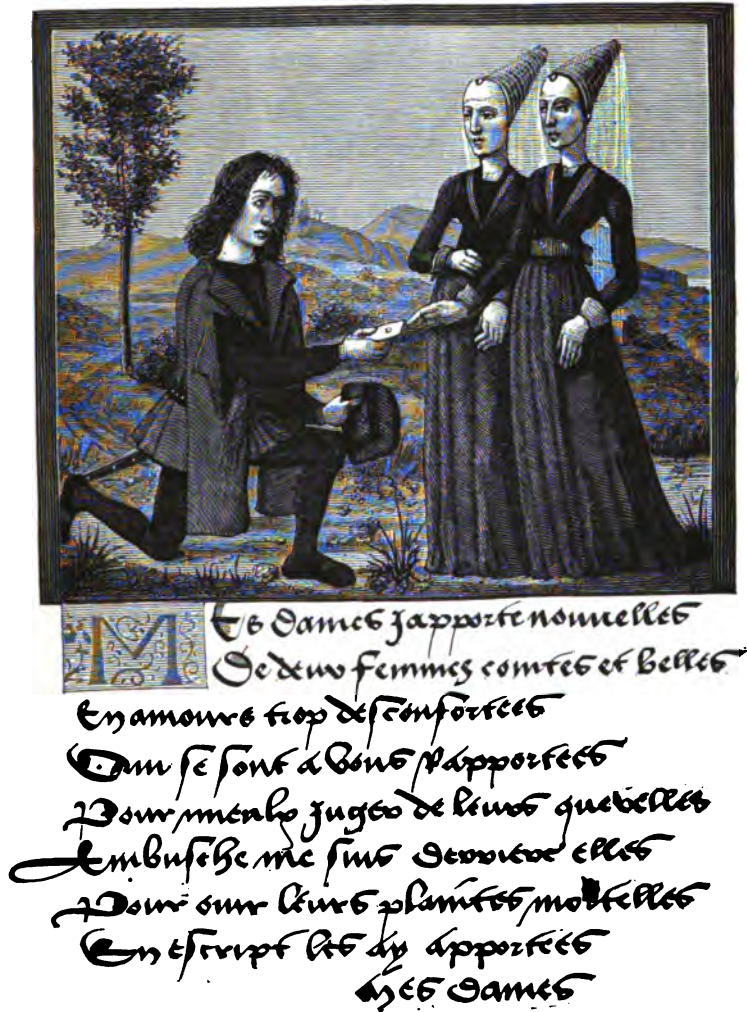 Mes dames Japporte nouvelles
De deux femmes cointes et belles
En amours trop desconfortees
Qui se sont a vous Rapportees
Pour mieulx Juger de leurs querelles
Embusche me suis derriere elles
Pour ouir leurs plaintes mortelles
En escript les ay apportees
Mes dames